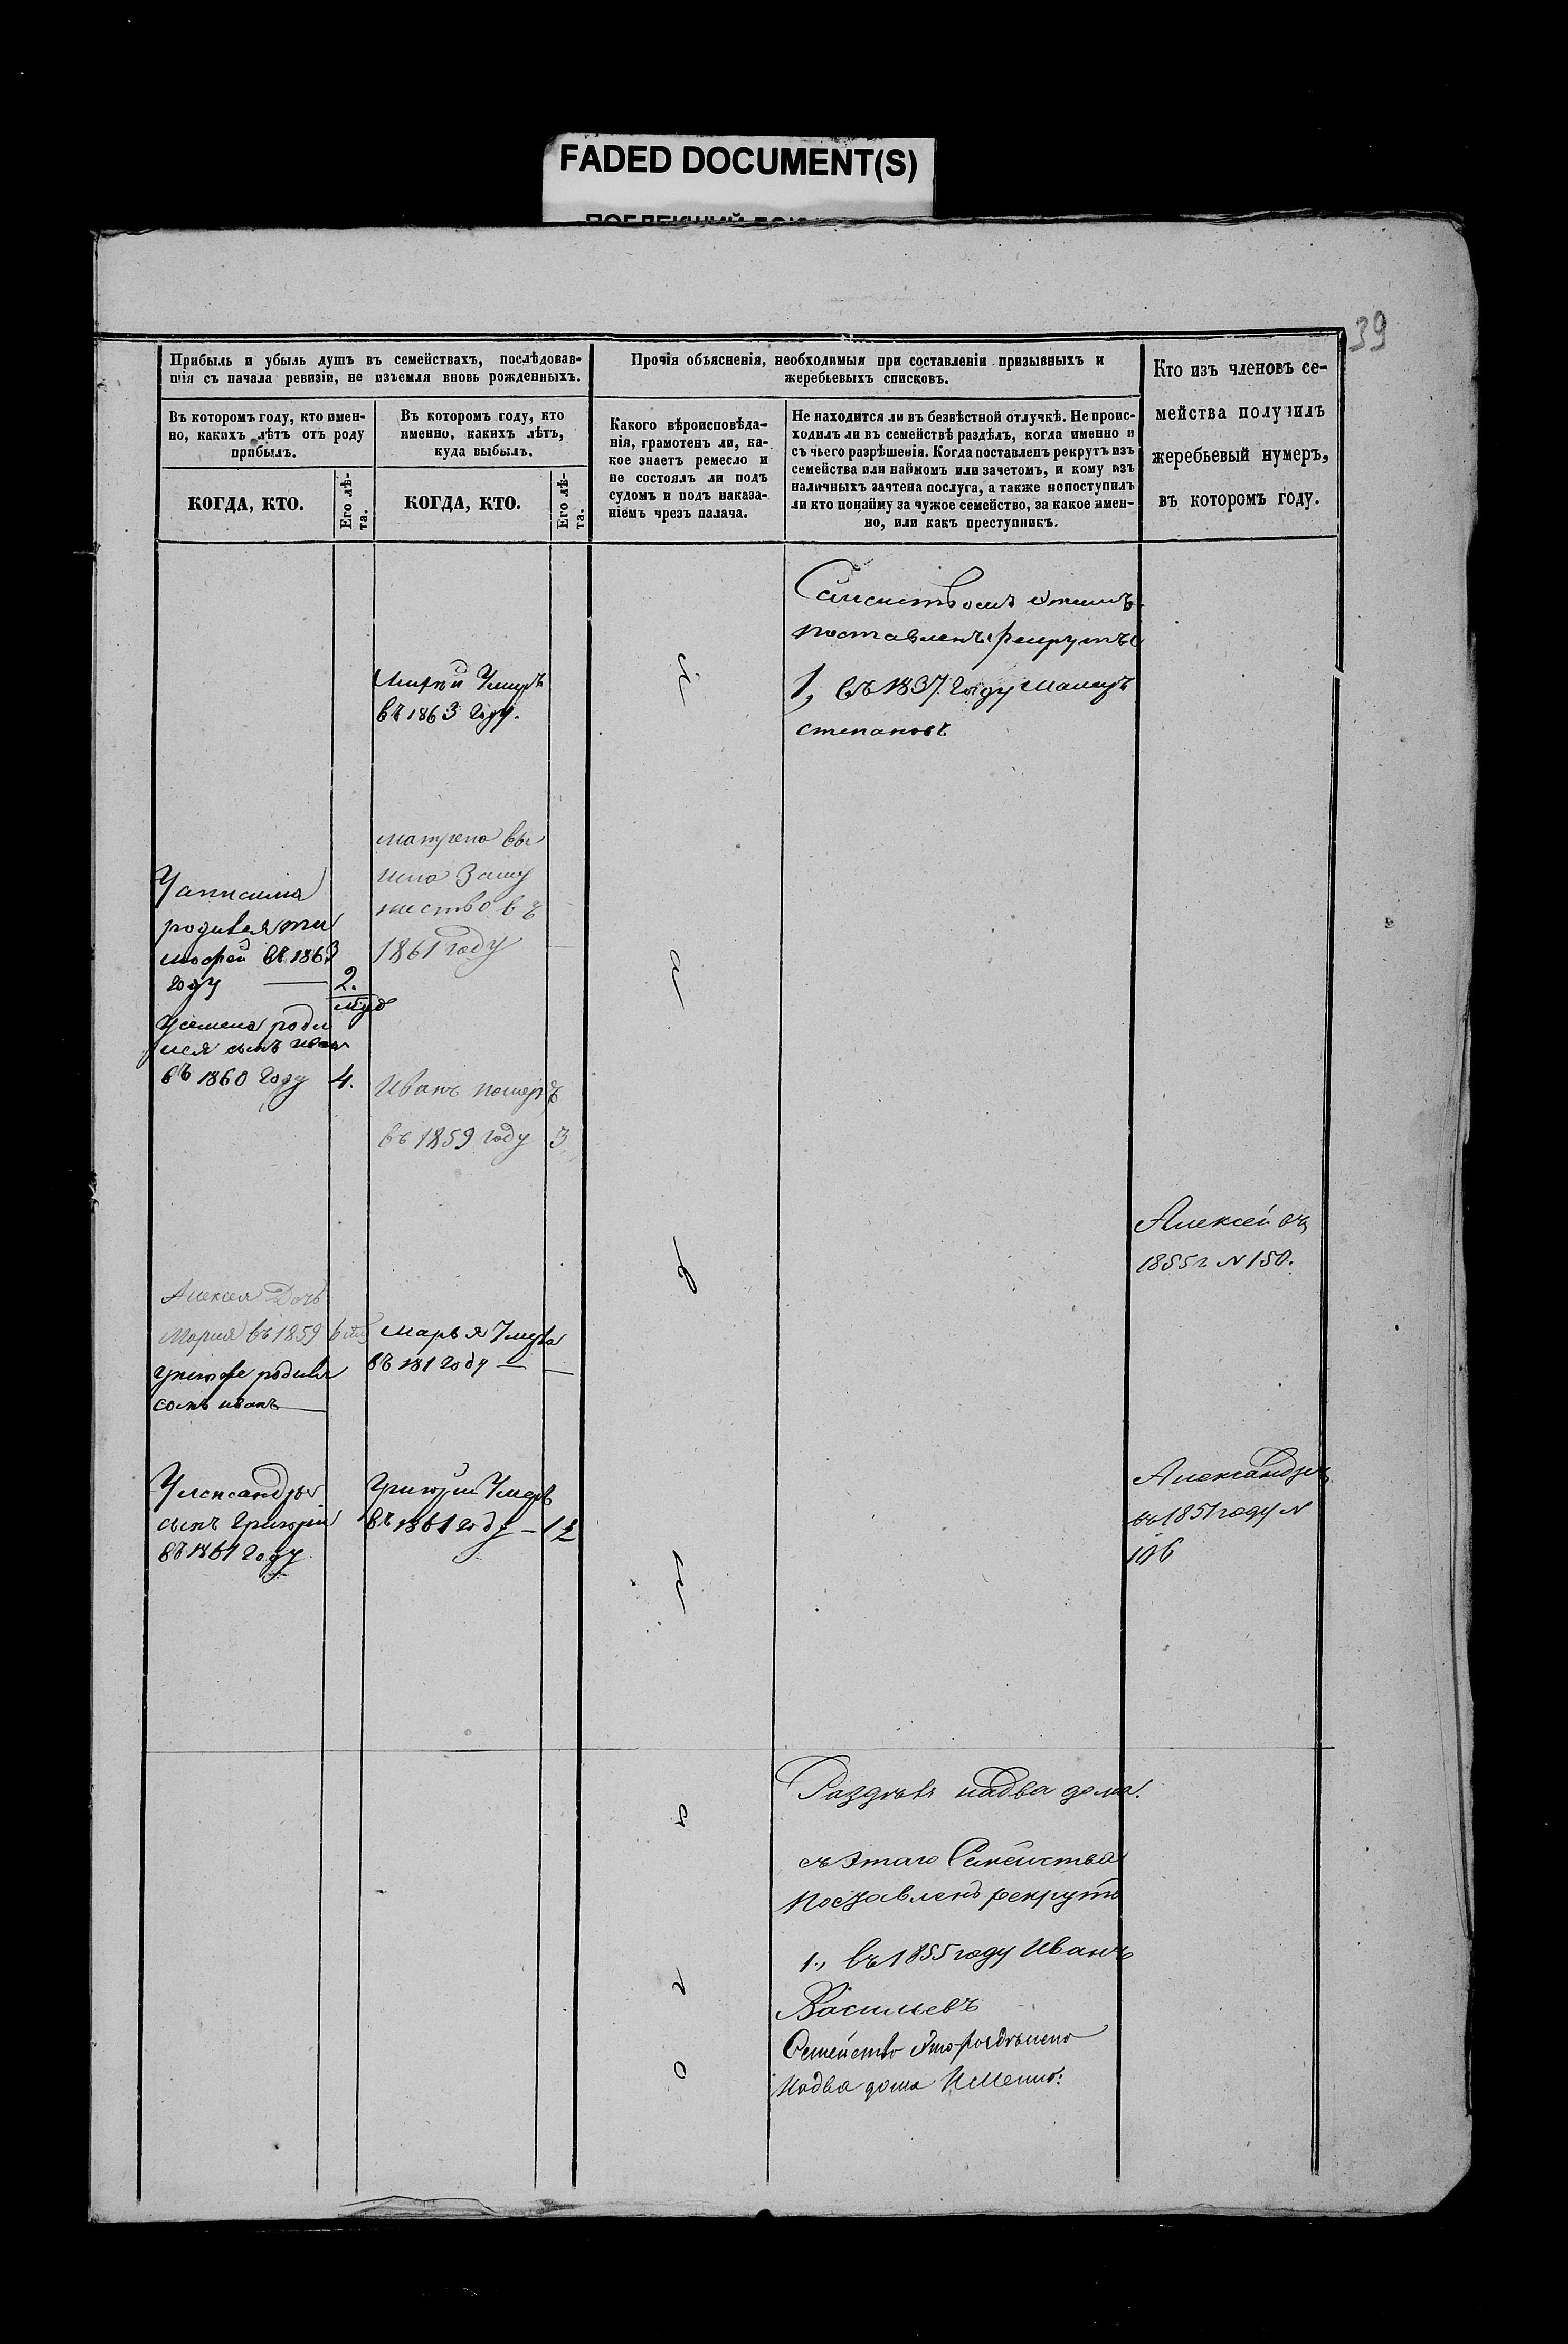 FADED DOCUMENT(S)
39
Прибыль и убыль душъ въ семействахъ, послѣдовав-
шія съ начала ревизіи, не изъемля вновь рожденныхъ.
Въ которомъ году, кто имен-
но, какихъ лѣтъ отъ роду
прибылъ.
КОГДА, КТО.
Его лѣ-
та.
Въ которомъ году, кто
именно, какихъ лѣтъ,
куда выбылъ.
КОГДА, КТО.
Его лѣ-
та.
Прочія объясненія, необходимыя при составленіи призывныхъ и
жеребьевыхъ списковъ.
Какого вѣроисповѣда-
нія, грамотенъ ли, ка-
кое знаетъ ремесло и
не состоялъ ли подъ
судомъ и подъ наказа-
ніемъ чрезъ палача.
Не находится ли въ безвѣстной отлучкѣ. Не проис-
ходилъ ли въ семействѣ раздѣлъ, когда именно и
съ чьего разрѣшенія. Когда поставленъ рекрутъ изъ
семейства или наймомъ или зачетомъ, и кому изъ
наличныхъ зачтена послуга, а также непоступилъ
ли кто понайму за чужое семейство, за какое имен-
но, или какъ преступникъ.
Кто изъ членовъ се-
мейства получилъ
жеребьевый нумеръ,
въ которомъ году.
родився ти
мофей въ 1863
году 2.
родил
ся сынъ иван
въ 1860 году 4.
Алексея Дочь
Мария въ 1859
родивс
сынъ иванъ
Уалександры
сынъ Григорий
въ 1861 году
Умеръ
въ 1863 году.
матрена вы
шла Заму
жество въ
1861 году
Иванъ померъ
въ 1859 году 3
Марья Умерла
въ 181 году —
Григорий Умеръ
въ 1861 году — 1/2
поставленъ рекрутъ
1, въ 1837 году
степановъ
Раздѣлъ надва дома.
съ этаго Семейства
Поставленъ рекрутъ
1., въ 1855 году Иванъ
Васильевъ
Семейство это раздѣлено
Надва дома Именно:
Алексей въ
1855 г N 150.
Александръ
въ 1851 году N
106